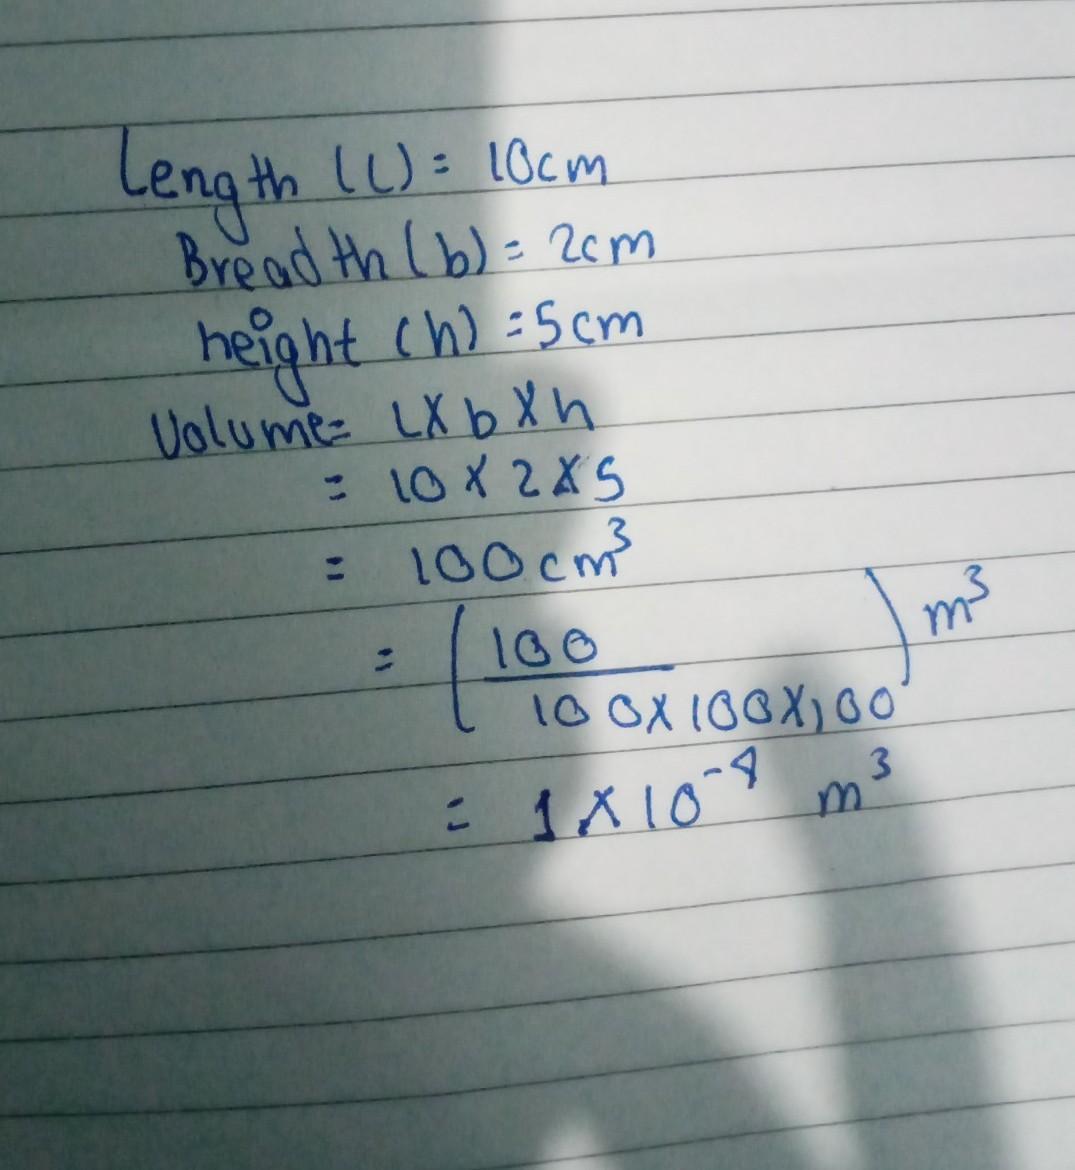 Length (L) = 10cm
Breadth (b) = 2cm
height (h) = 5cm
Volume = L X b X h
= 10 X 2 X 5
= 100 cm³
= (100 / 100X100X100) m³
= 1 X 10⁻⁴ m³